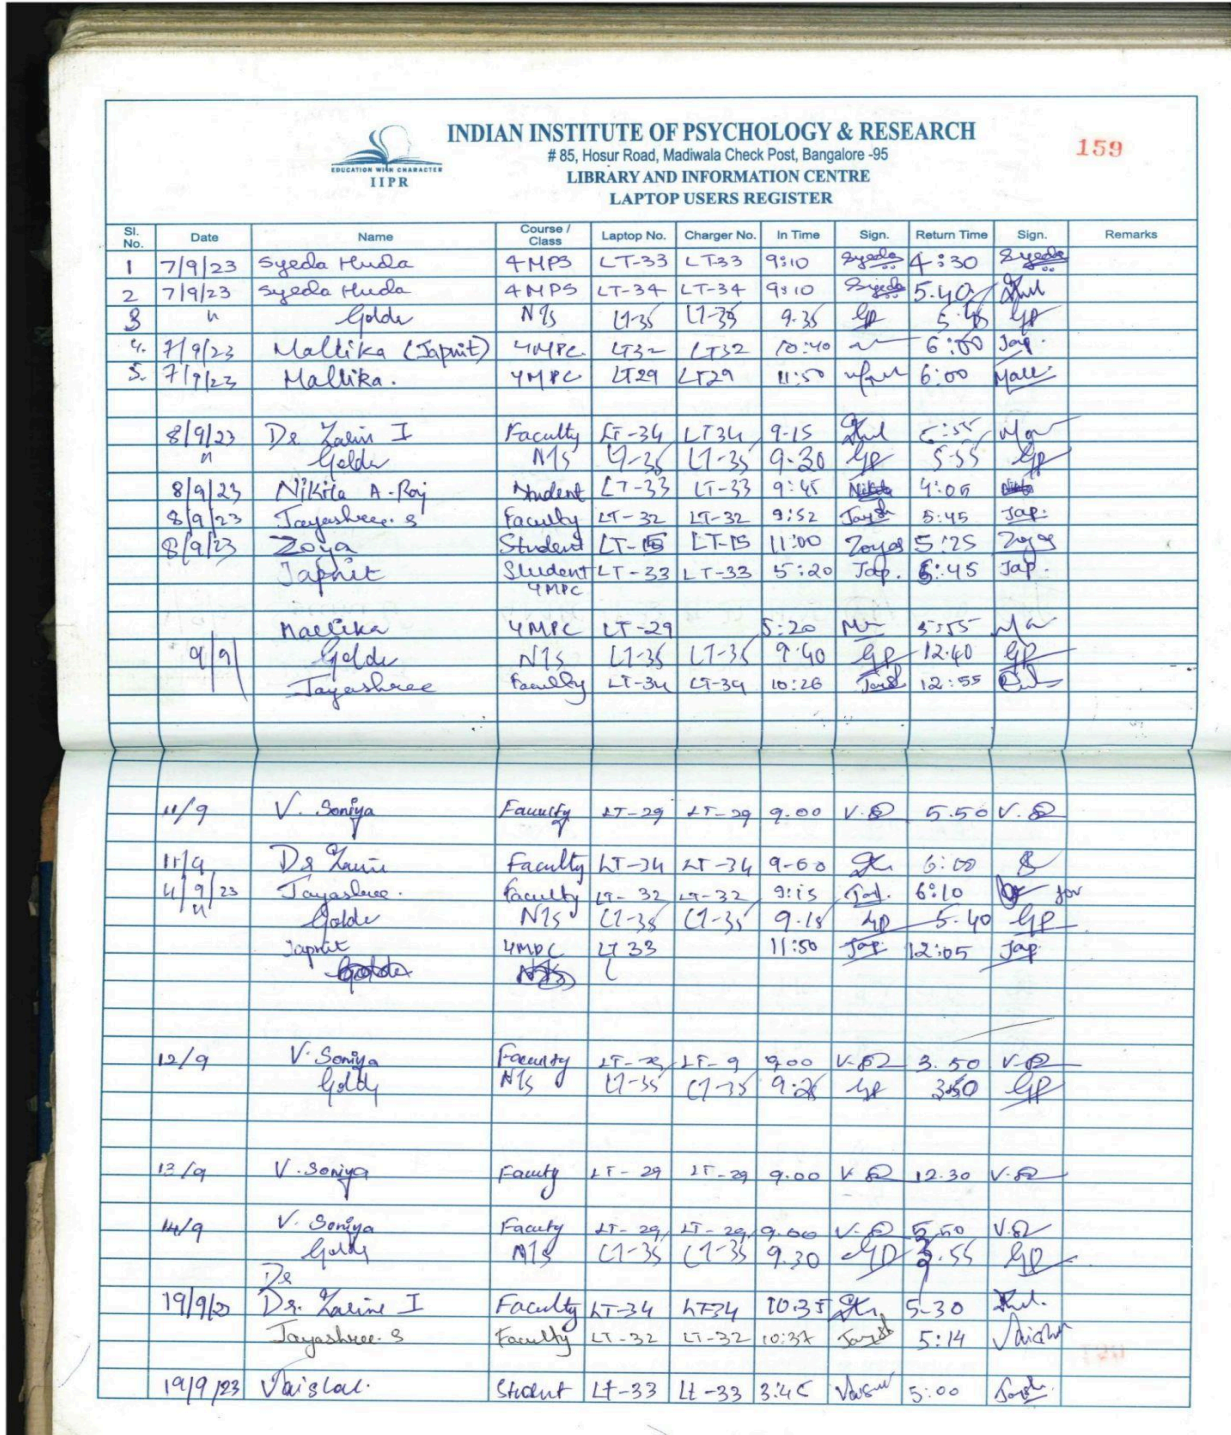 INDIAN INSTITUTE OF PSYCHOLOGY & RESEARCH
# 85, Hosur Road, Madiwala Check Post, Bangalore -95
159
EDUCATION WITH CHARACTER
IIPR
LIBRARY AND INFORMATION CENTRE
LAPTOP USERS REGISTER
Sl. No. Date Name Course / Class Laptop No. Charger No. In Time Sign. Return Time Sign. Remarks
1 7/9/23 Syeda Huda 4MPS LT-33 LT33 9:10 Syeda 4:30 Syeda
2 7/9/23 Syeda Huda 4MPS LT-34 LT-34 9:10 Syeda 5.40
3 " Goldy NTS LT-35 LT-35 9.35 GP GP
4. 7/9/23 Mallika (Japnit) 4MPC LT32 LT32 10:40 6:00 Jap.
5. 7/9/23 Mallika. 4MPC LT29 LT29 11:50 6:00 Mall.
8/9/23 Dr Zarine I Faculty LT-34 LT34 9-15
" Goldy NTS LT-35 LT-35 9.30 GP 5.55 GP
8/9/23 Nikita A-Roj Student LT-33 LT-33 9:45 Nikita 4:05
8/9/23 Jayashree. S Faculty LT-32 LT-32 9:52 5:45 Jap.
8/9/23 Zoya Student LT-15 LT-15 11:00 Zoya 5:25 Zoya
Japnit Student LT-33 LT-33 5:20 Jap. 6:45 Jap.
4MPC
Mallika 4MPC LT-29 5:20 5:55
9/9 Goldy NTS LT-35 LT-35 9.40 GP 12.40 GP
Jayashree Faculty LT-34 LT-34 10:26 12:55
11/9 V. Soniya Faculty LT-29 LT-29 9.00 V.S 5.50 V.S
11/9 Dr Zarine Faculty LT-34 LT-34 9-00 6:00
11/9/23 Jayashree. Faculty LT-32 LT-32 9:15 6:10
" Goldy NTS LT-35 LT-35 9.15 GP 5.40 GP
Japnit 4MPC LT 33 11:50 Jap. 12:05 Jap.
12/9 V. Soniya Faculty LT-29 LT-9 9.00 V.S 3.50 V.S
Goldy NTS LT-35 LT-35 9.25 GP 3.50 GP
13/9 V. Soniya Faculty LT-29 LT-29 9.00 V.S 12.30 V.S
14/9 V. Soniya Faculty LT-29 LT-29 9.00 V.S 5.50 V.S
Goldy NTS LT-35 LT-35 9.30 GP GP
Dr
19/9/23 Dr. Zarine I Faculty LT-34 LT34 10.35 5-30
Jayashree. S Faculty LT-32 LT-32 10:37 5:14
19/9/23 Student LT-33 LT-33 3:45 5:00